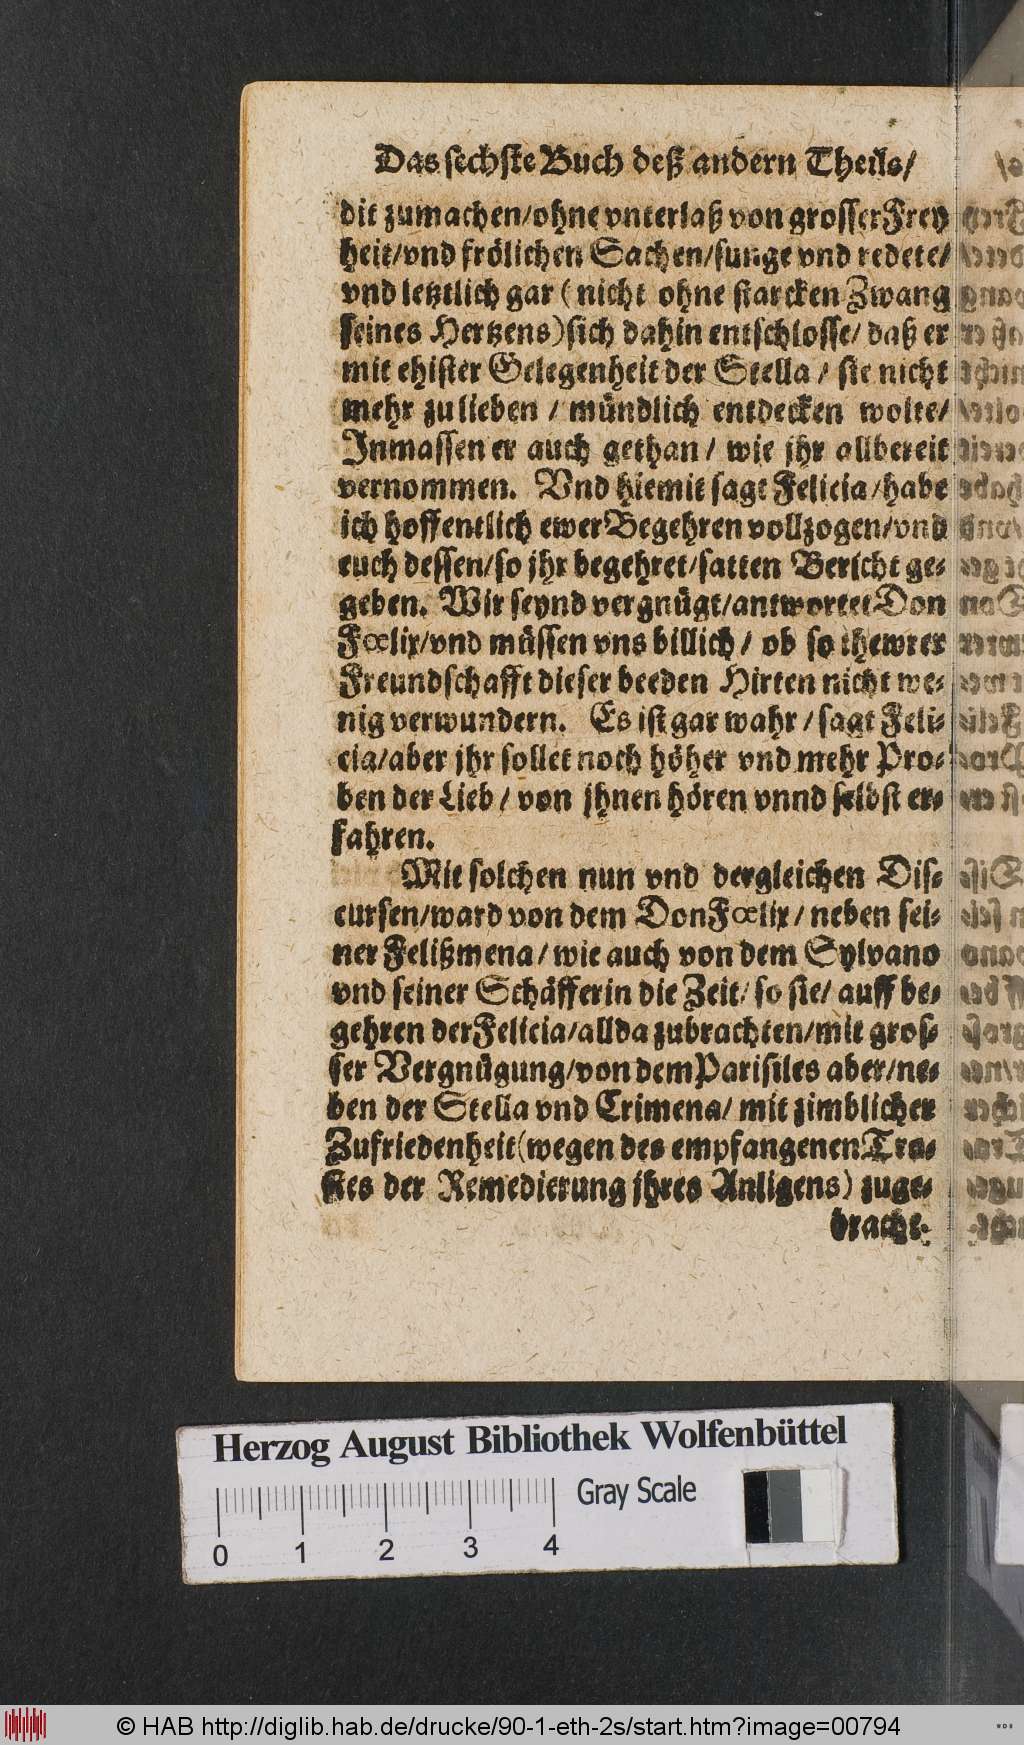 Das sechste Buch deß andern Theils/
dit zumachen/ohne vnterlaß von grosser Frey
heit/vnd frölichen Sachen/sunge vnd redete/
vnd letztlich gar (nicht ohne starcken Zwang
seines Hertzens) sich dahin entschlosse/ daß er
mit ehister Gelegenheit der Stella / sie nicht
mehr zu lieben / mündlich entdecken wolte/
Inmassen er auch gethan / wie jhr allbereit
vernommen. Vnd hiemit sagt Felicia /habe
ich hoffentlich ewer Begehren vollzogen/vnd
euch dessen/so jhr begehret/satten Bericht ge-
geben. Wir seynd vergnügt/antwortet Don
Fœlix/vnd müssen vns billich / ob so thewrer
Freundschafft dieser beeden Hirten nicht we-
nig verwundern. Es ist gar wahr / sagt Feli-
cia/aber jhr sollet noch höher vnd mehr Pro-
ben der Lieb / von jhnen hören vnnd selbst er-
fahren.
Mit solchen nun vnd dergleichen Dis-
cursen/ward von dem Don Fœlix / neben sei-
ner Felißmena / wie auch von dem Sylvano
vnd seiner Schäfferin die Zeit/ so sie/ auff be-
gehren der Felicia/allda zubrachten/mit gros-
ser Vergnügung/von dem Parisiles aber/ne-
ben der Stella vnd Crimena/ mit zimblicher
Zufriedenheit (wegen des empfangenen Tro-
stes der Remedierung jhres Anligens) zuge-
bracht.
Herzog August Bibliothek Wolfenbüttel
Gray Scale
0 1 2 3 4
© HAB http://diglib.hab.de/drucke/90-1-eth-2s/start.htm?image=00794